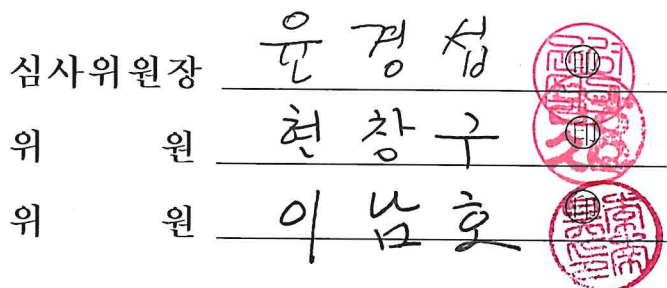 심사위원장 윤경섭 印
위 원 현창구 印
위 원 이남호 印